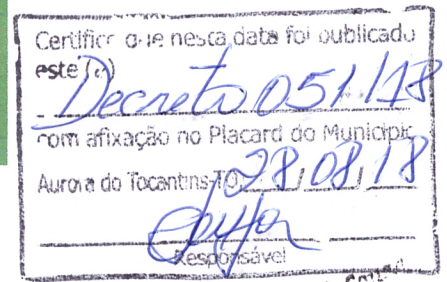 Certifico que nesta data foi publicado
este (a)
Decreto 051/18
com afixação no Placard do Município
Aurora do Tocantins-TO, 28/08/18
Responsável